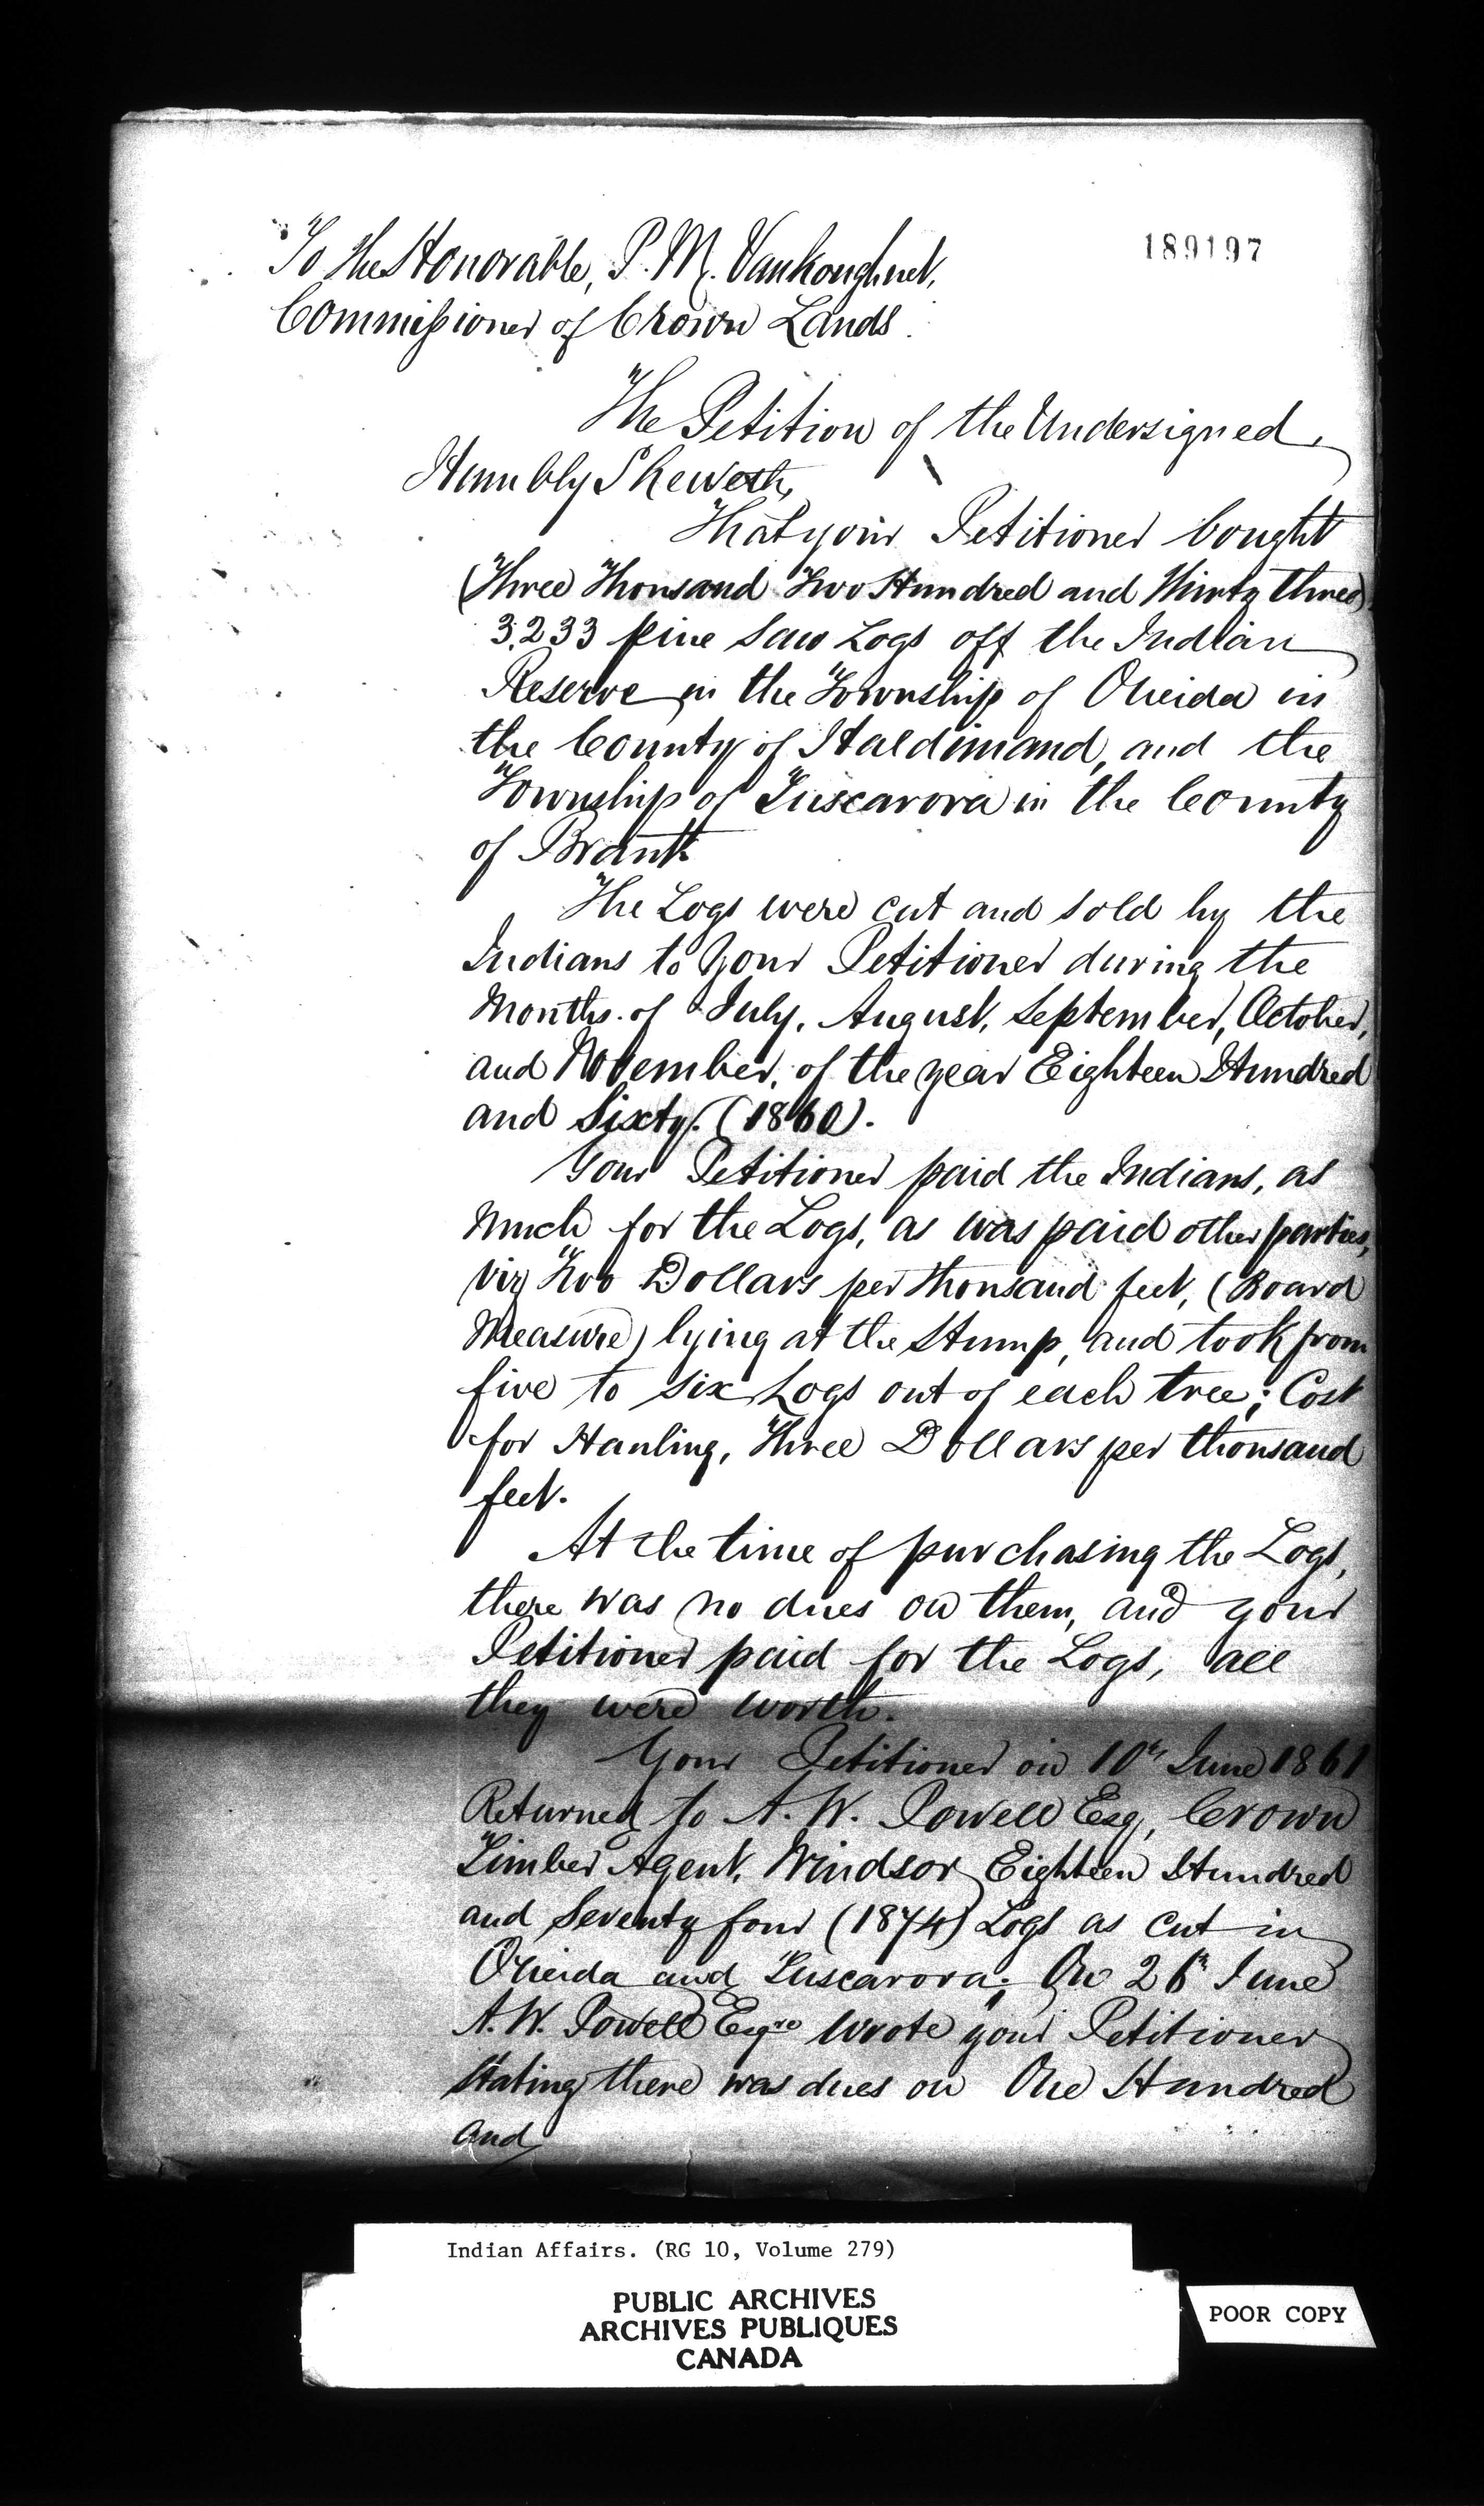 189197
To the Honorable, P. M. Vankoughnet,
Commissioner of Crown Lands.
The Petition of the Undersigned,
Humbly Sheweth,
That your Petitioner bought
(Three Thousand Two Hundred and Thirty three)
3,233 pine Saw Logs off the Indian
Reserve in the Township of Oneida in
the County of Haldimand, and the
Township of Tuscarora in the County
of Brant.
The Logs were cut and sold by the
Indians to Your Petitioner during the
Months of July, August, September, October,
and November, of the year Eighteen Hundred
and Sixty. (1860).
Your Petitioner paid the Indians, as
much for the Logs, as was paid other parties,
viz Two Dollars per thousand feet, (Board
Measure) lying at the Stump, and took from
five to six Logs out of each tree; Cost
for Hauling, Three Dollars per thousand
feet.
At the time of purchasing the Logs,
there was no dues on them, and your
Petitioner paid for the Logs, all
they were worth.
Your Petitioner on 10th June 1861
Returned to A. W. Powell Esq, Crown
Timber Agent, Windsor Eighteen Hundred
and Seventy four (1874) Logs as cut in
Oneida and Tuscarora; On 26th June
A. W. Powell Esqre wrote your Petitioner
stating there was dues on One Hundred
and
Indian Affairs. (RG 10, Volume 279)
PUBLIC ARCHIVES
ARCHIVES PUBLIQUES
CANADA
POOR COPY